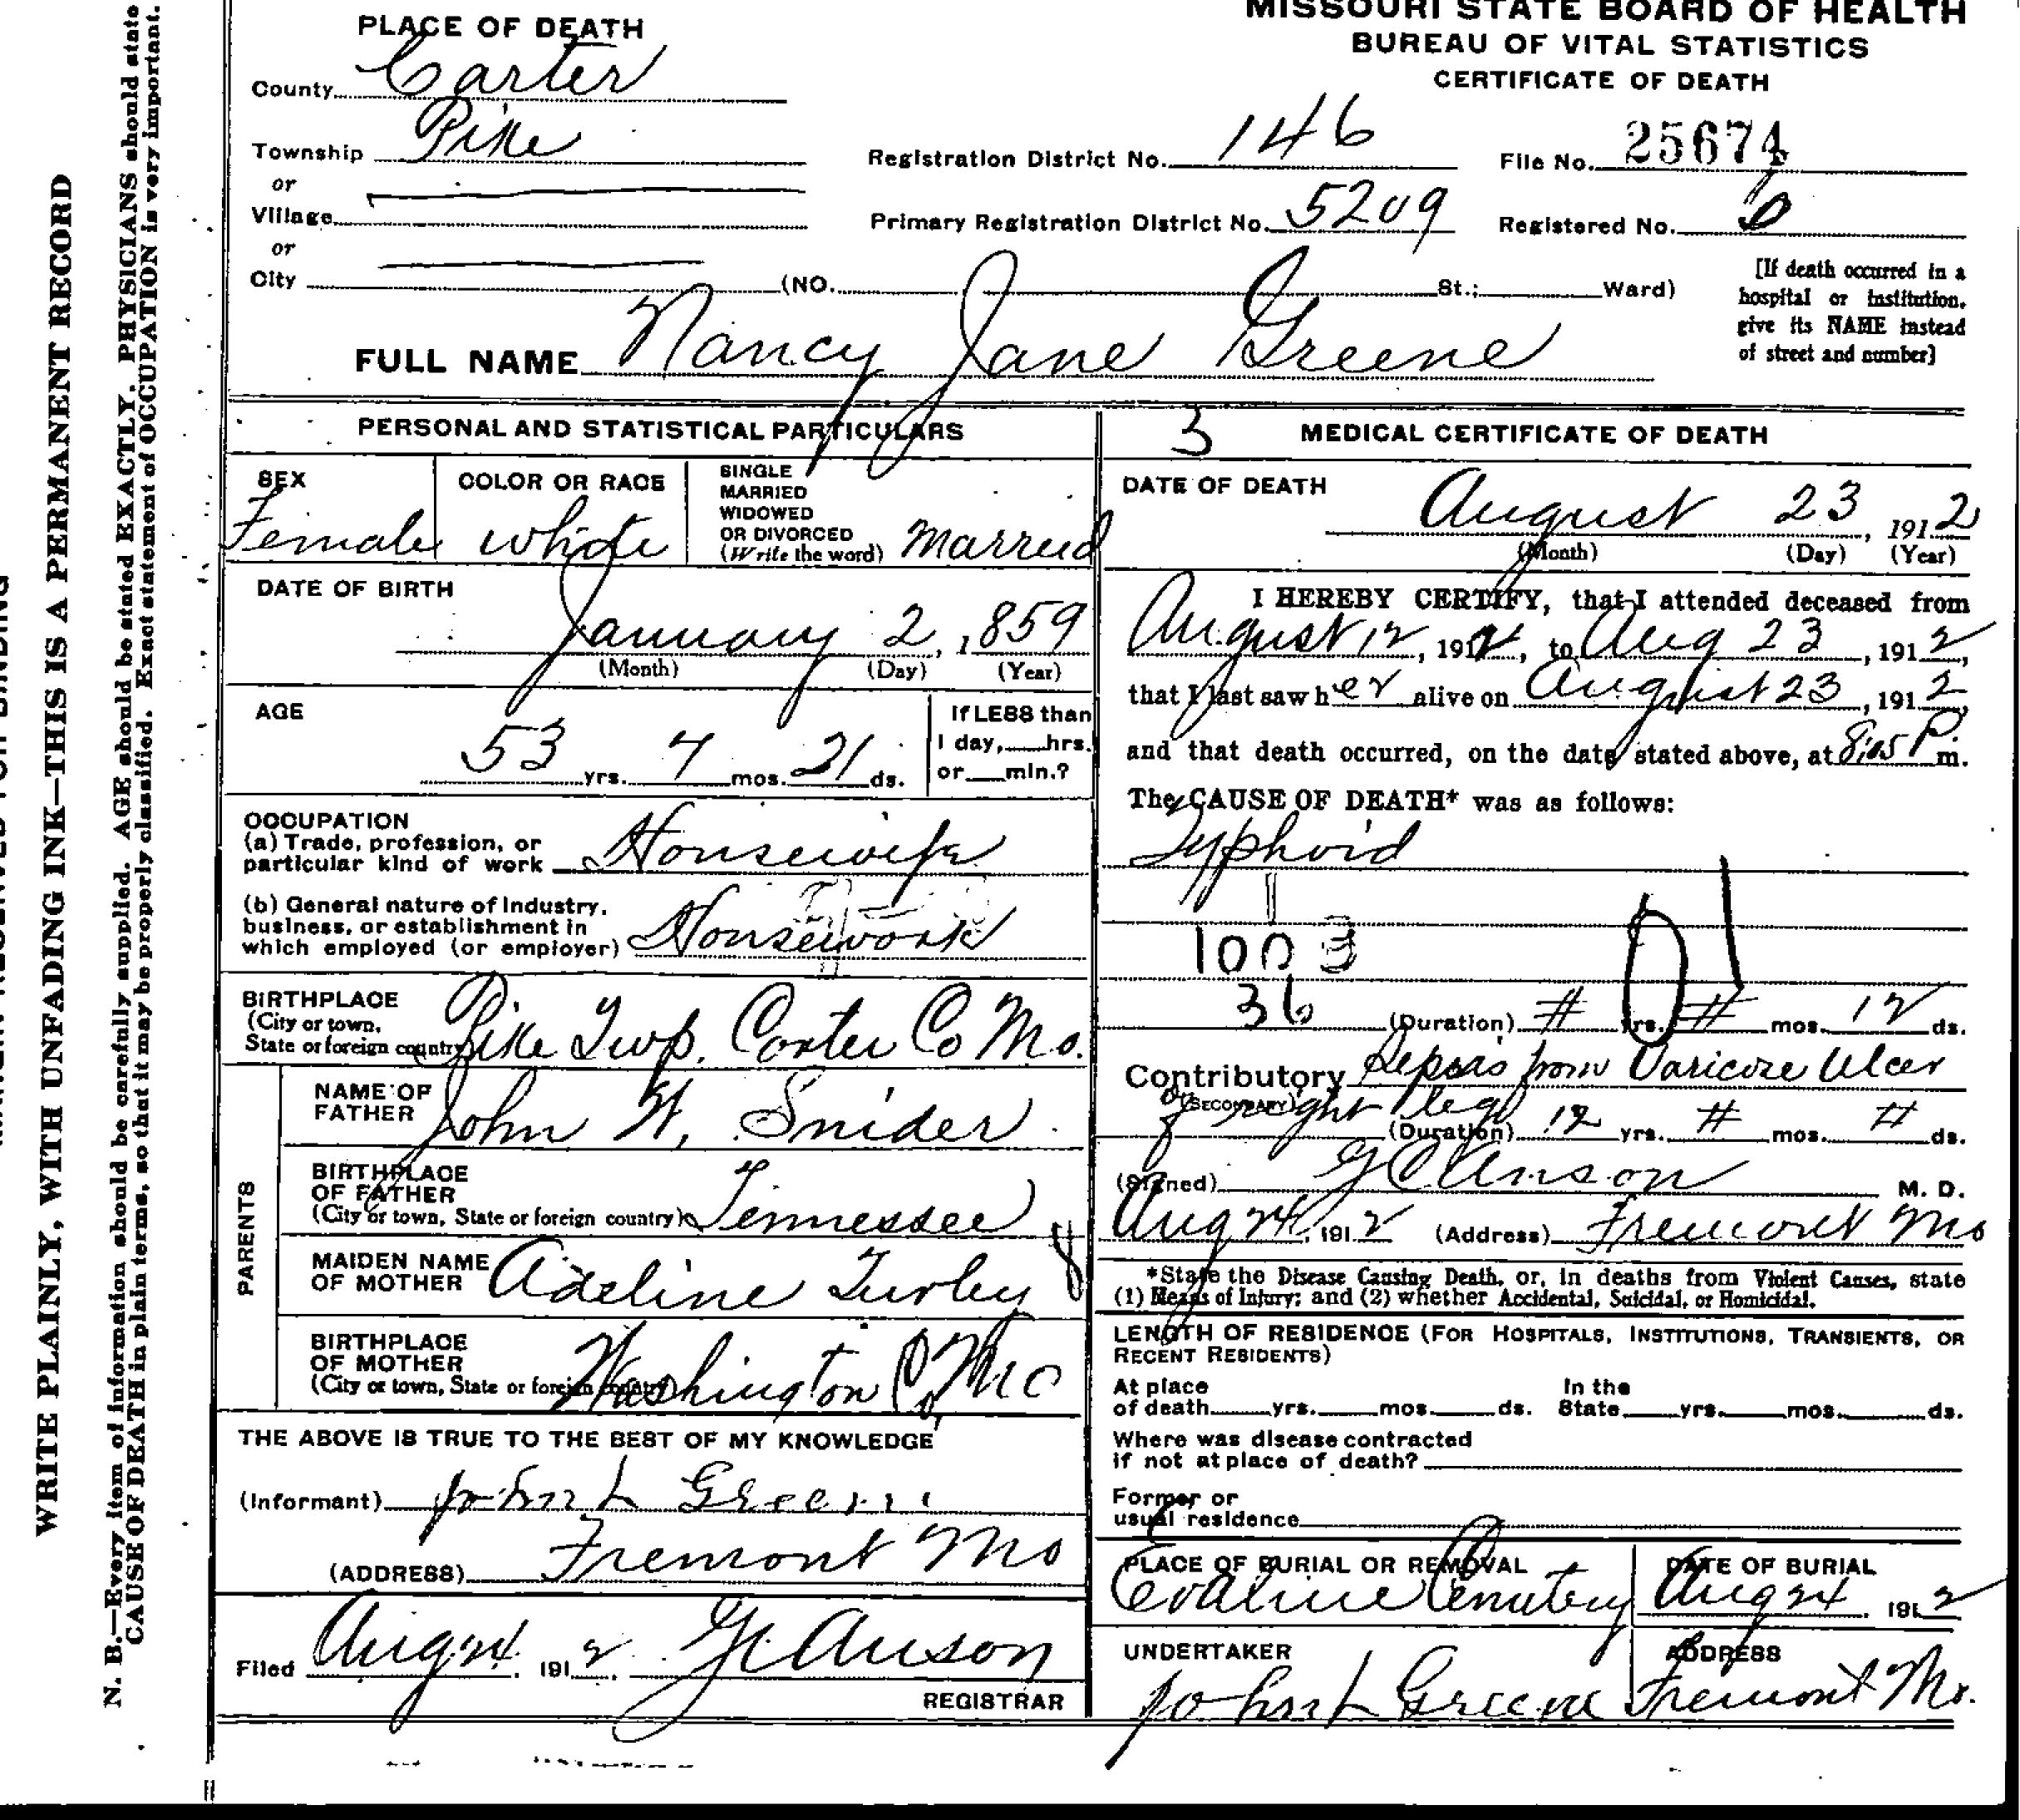 MISSOURI STATE BOARD OF HEALTH
BUREAU OF VITAL STATISTICS
CERTIFICATE OF DEATH
PLACE OF DEATH
County Carter
Township Pike
or
Village
or
City (NO. St.; Ward)
Registration District No. 146 File No. 25674
Primary Registration District No. 5209 Registered No. 6
[If death occurred in a
hospital or institution,
give its NAME instead
of street and number]
FULL NAME Nancy Jane Greene
PERSONAL AND STATISTICAL PARTICULARS
SEX
Female
COLOR OR RACE
white
SINGLE
MARRIED
WIDOWED
OR DIVORCED
(Write the word) Married
DATE OF BIRTH
January 2, 1859
(Month) (Day) (Year)
AGE
53 yrs. 7 mos. 21 ds.
If LESS than
1 day, hrs.
or min.?
OCCUPATION
(a) Trade, profession, or
particular kind of work Housewife
(b) General nature of Industry,
business, or establishment in
which employed (or employer) Housework
BIRTHPLACE
(City or town,
State or foreign country) Pike Twp. Carter Co Mo.
PARENTS
NAME OF
FATHER John W. Snider
BIRTHPLACE
OF FATHER
(City or town, State or foreign country) Tennessee
MAIDEN NAME
OF MOTHER Adeline Turley
BIRTHPLACE
OF MOTHER
(City or town, State or foreign country) Washington Co, Mo
THE ABOVE IS TRUE TO THE BEST OF MY KNOWLEDGE
(Informant) John L Greene
(ADDRESS) Fremont Mo
Filed Aug 24, 1912, Anson
REGISTRAR
3 MEDICAL CERTIFICATE OF DEATH
DATE OF DEATH
August 23, 1912
(Month) (Day) (Year)
I HEREBY CERTIFY, that I attended deceased from
August 12, 1912, to Aug 23, 1912,
that I last saw her alive on August 23, 1912,
and that death occurred, on the date stated above, at 8:05 P m.
The CAUSE OF DEATH* was as follows:
Typhoid
1003
36 (Duration) # yrs. # mos. 12 ds.
Contributory Sepsis from Varicose Ulcer
(SECONDARY) of right leg
(Duration) 12 yrs. # mos. # ds.
(Signed) Anson M. D.
Aug 24, 1912 (Address) Fremont Mo
*State the Disease Causing Death, or, in deaths from Violent Causes, state
(1) Means of Injury; and (2) whether Accidental, Suicidal, or Homicidal.
LENGTH OF RESIDENCE (FOR HOSPITALS, INSTITUTIONS, TRANSIENTS, OR
RECENT RESIDENTS)
At place
of death yrs. mos. ds.
In the
State yrs. mos. ds.
Where was disease contracted
if not at place of death?
Former or
usual residence
PLACE OF BURIAL OR REMOVAL
Evaline Cemetery
DATE OF BURIAL
Aug 24, 1912
UNDERTAKER
John L Greene
ADDRESS
Fremont Mo.
WRITE PLAINLY, WITH UNFADING INK—THIS IS A PERMANENT RECORD
N. B.—Every item of information should be carefully supplied. AGE should be stated EXACTLY. PHYSICIANS should state
CAUSE OF DEATH in plain terms, so that it may be properly classified. Exact statement of OCCUPATION is very important.